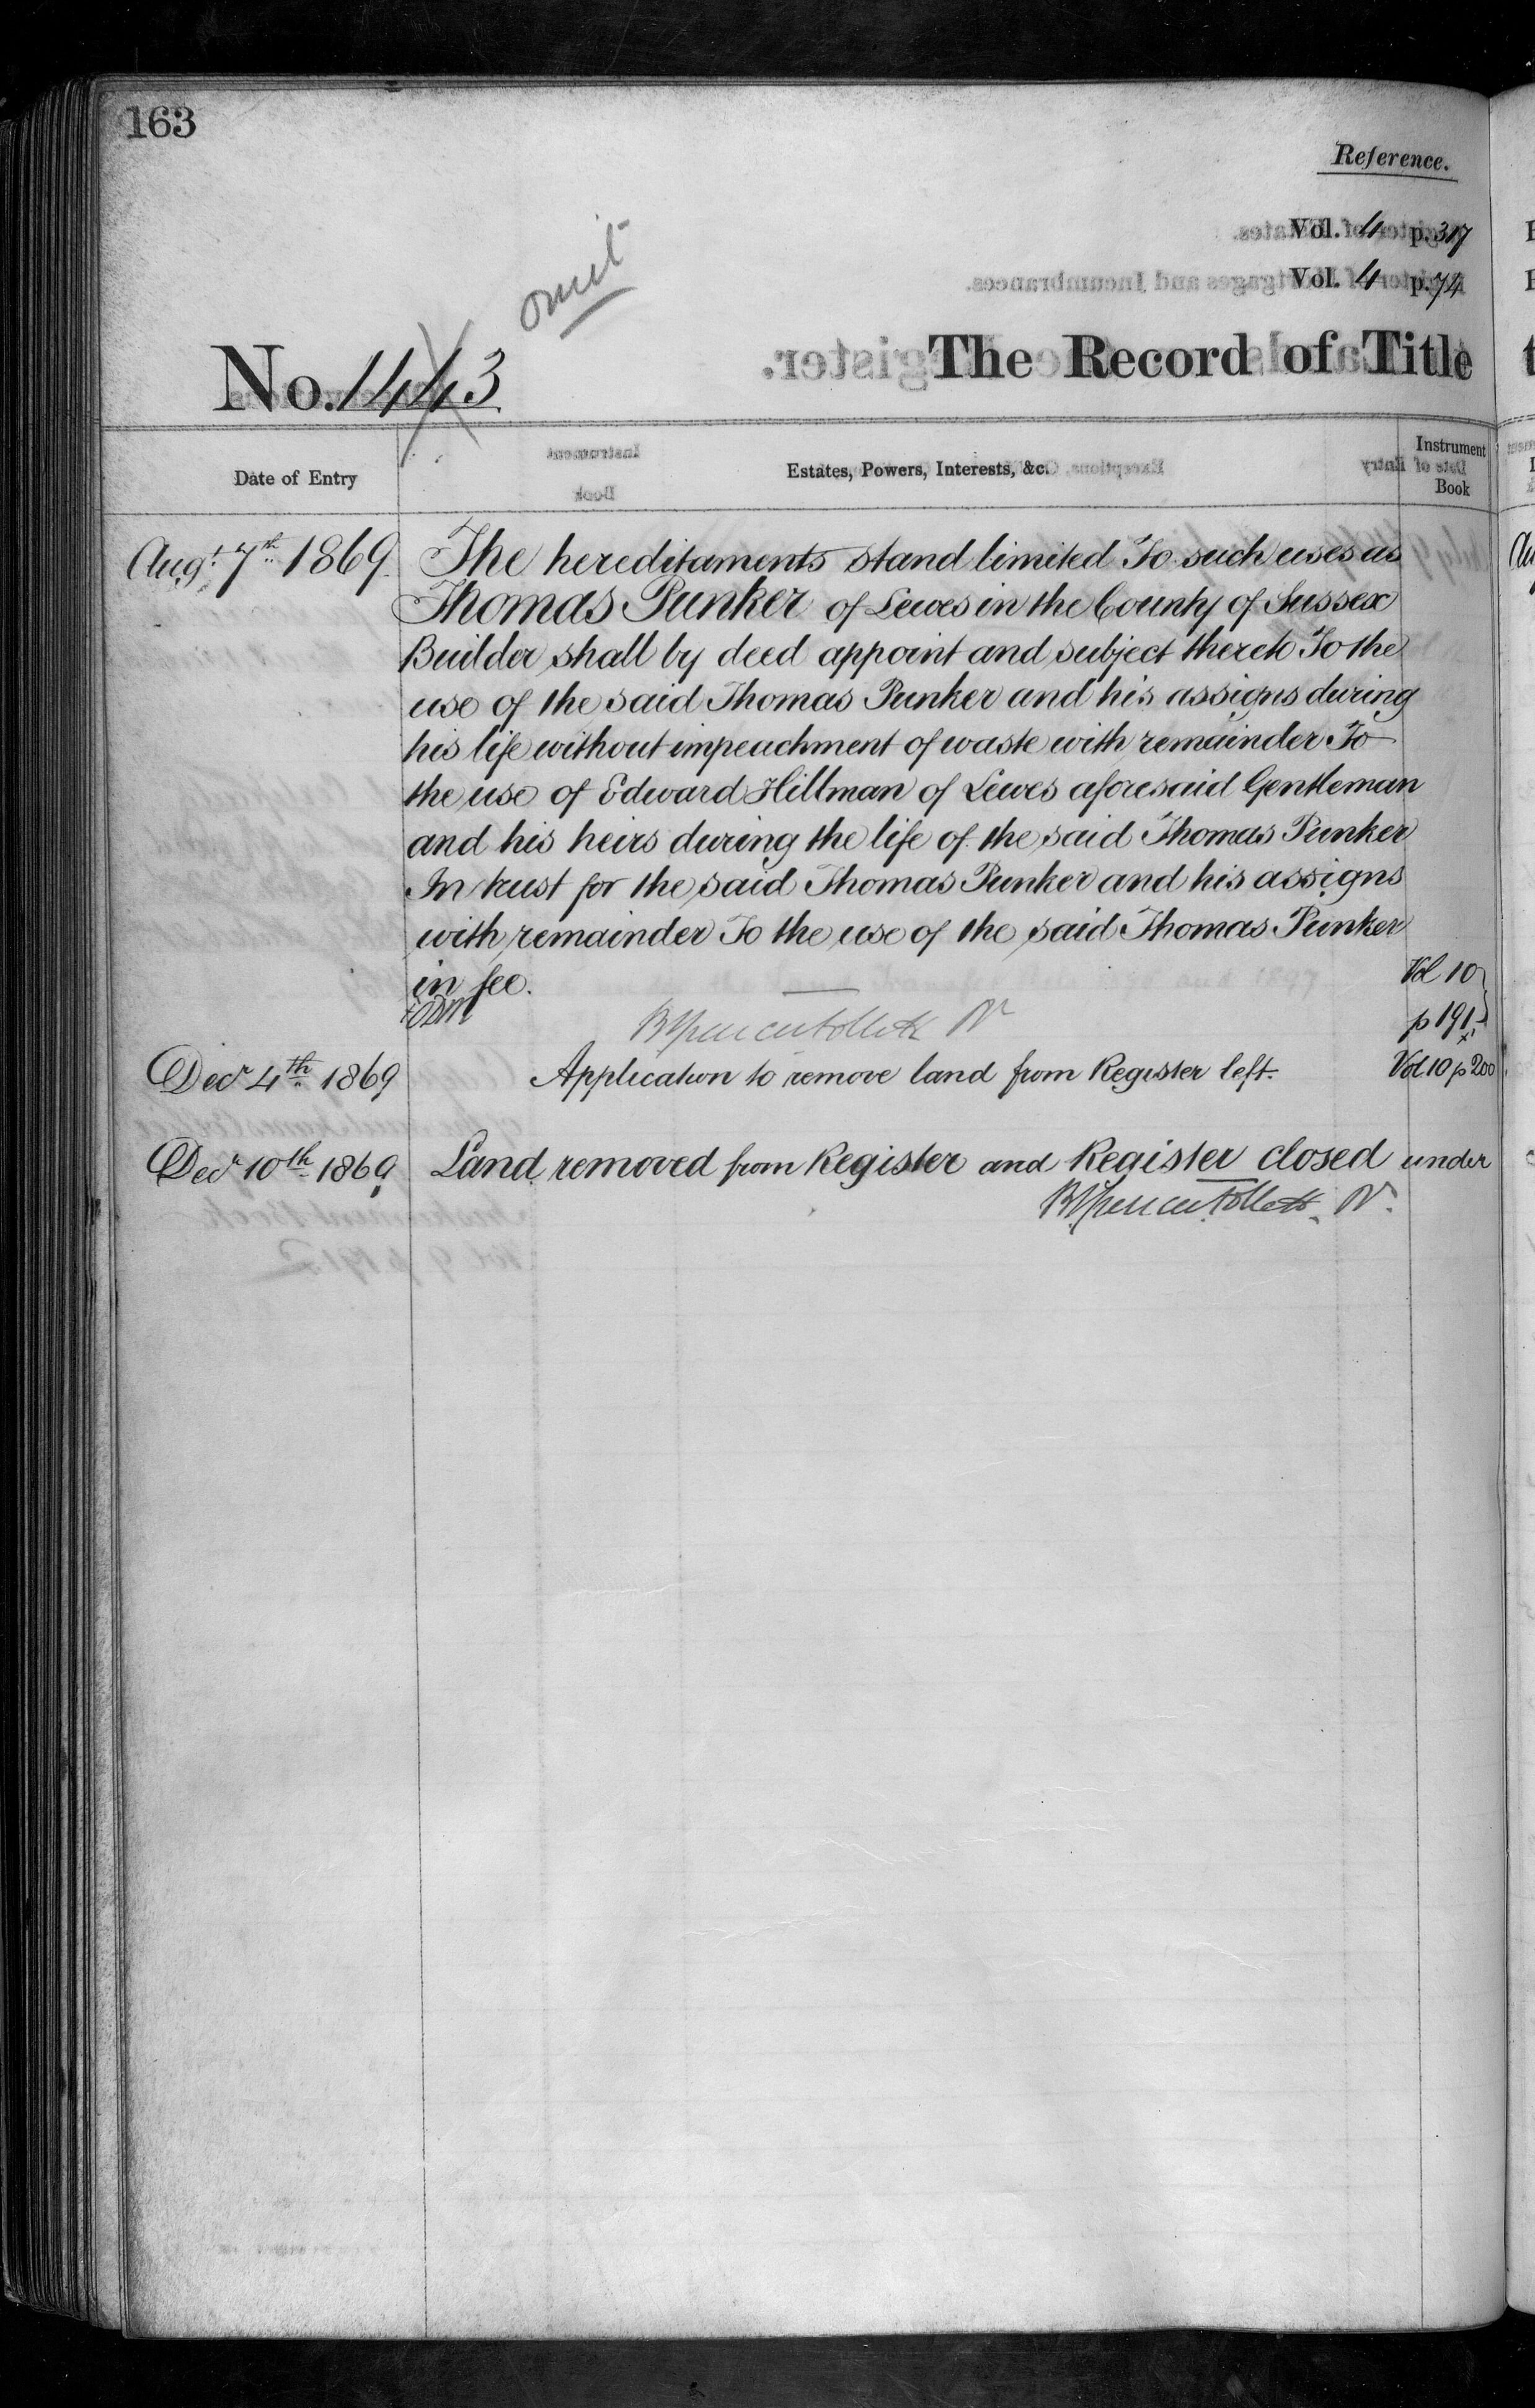 163
Reference.
Vol. 4 p. 317
Vol. 4 p. 74
omit
No. 1443
The Record of Title
Date of Entry
Estates, Powers, Interests, &c.
Instrument
Book
Augt. 7th 1869. The hereditaments stand limited To such uses as
Thomas Punker of Lewes in the County of Sussex
Builder shall by deed appoint and subject thereto To the
use of the said Thomas Punker and his assigns during
his life without impeachment of waste with remainder To
the use of Edward Hillman of Lewes aforesaid Gentleman
and his heirs during the life of the said Thomas Punker
In trust for the said Thomas Punker and his assigns
with remainder To the use of the said Thomas Punker
in fee. Vol 10
p 191
B Spencer Follett
Decr 4th 1869 Application to remove land from Register left. Vol. 10 p 200
Decr 10th 1869 Land removed from Register and Register closed under
B. Spencer Follett